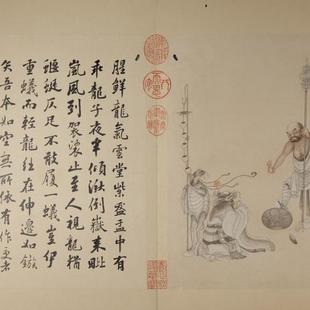 腥鮮龍氣雲堂紫盋盂中有
乖龍子夜半傾湫倒嶽來毗
嵐風到袈裟止至人視龍猶
蝘蜓仄足不敢履一蟻豈伊
重蟻而輕龍在伸邊如鏃
矢吾本如空無所依有作者